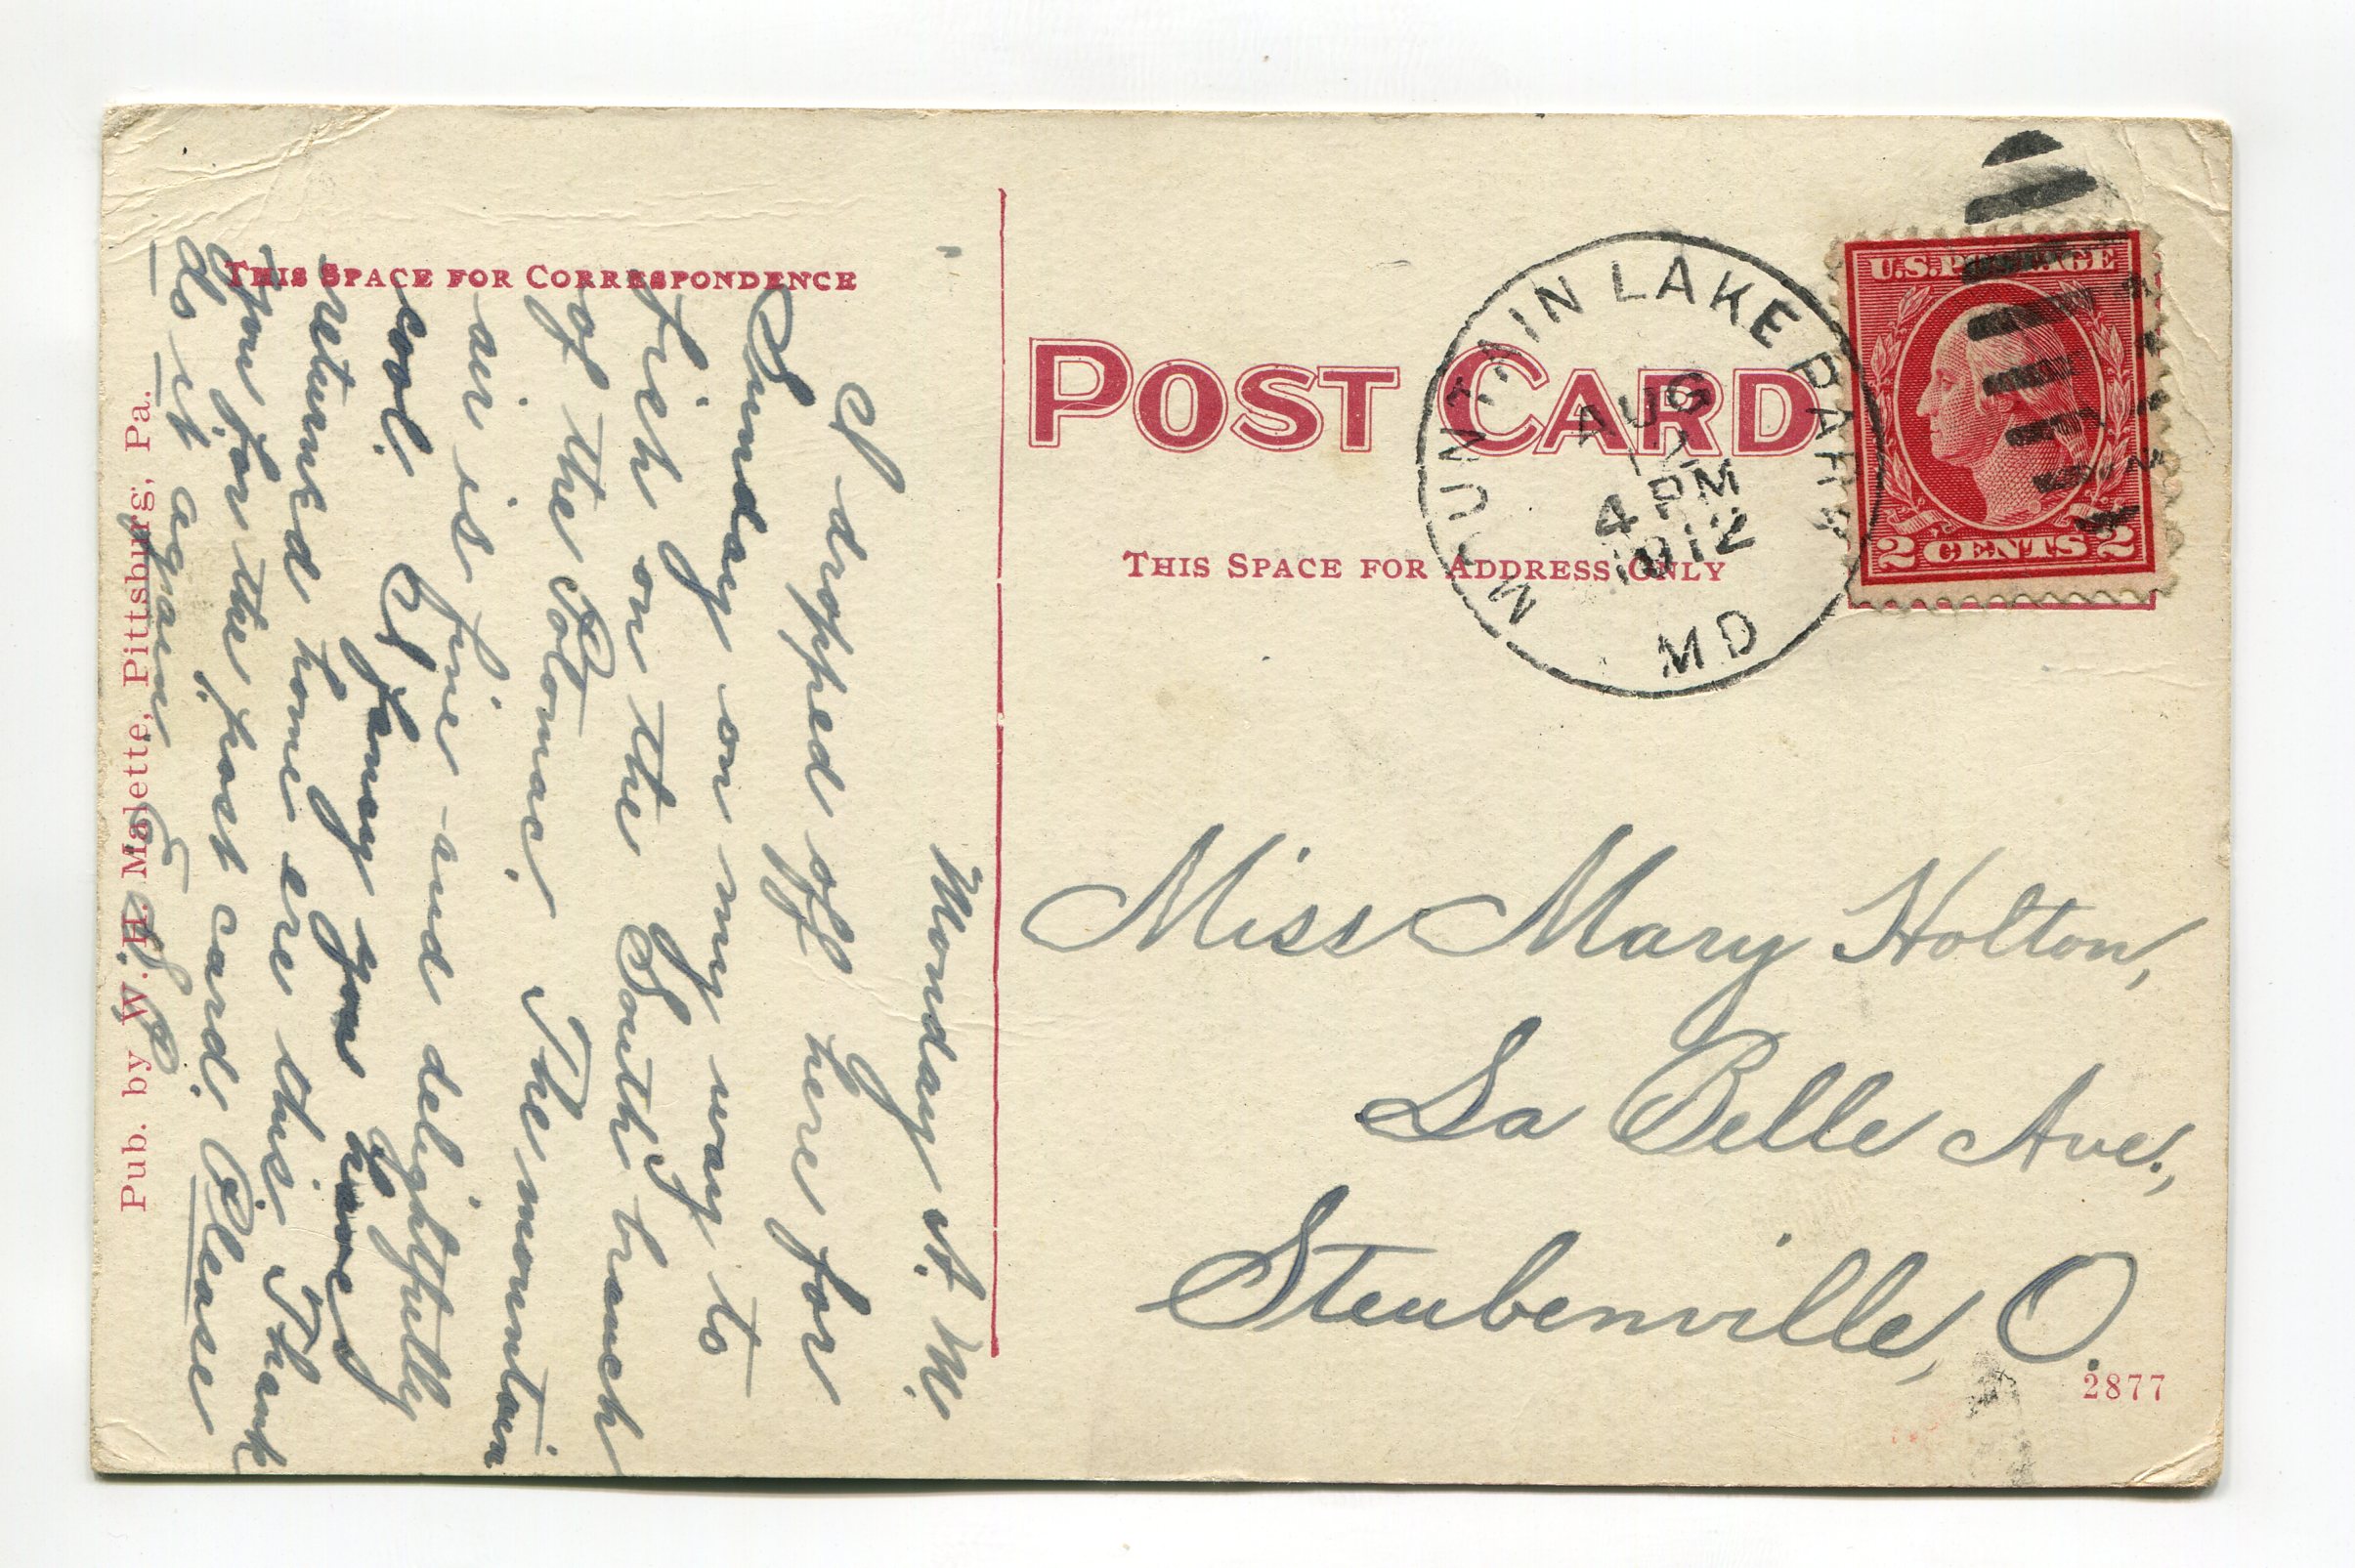 THIS SPACE FOR CORRESPONDENCE
Monday A. M.
I dropped off here for
Sunday on my way to
fish on the South branch
of the Potomac. The mountain
air is fine and delightfully
cool. I fancy you have
returned home ere this. Thank
you for the post card. Please
do it again.
Pub. by W. H. Malette, Pittsburg, Pa.
POST CARD
THIS SPACE FOR ADDRESS ONLY
MOUNTAIN LAKE PARK
AUG
4 PM
1912
MD
U.S. POSTAGE
2 CENTS 2
Miss Mary Holton,
La Belle Ave.,
Steubenville, O.
2877